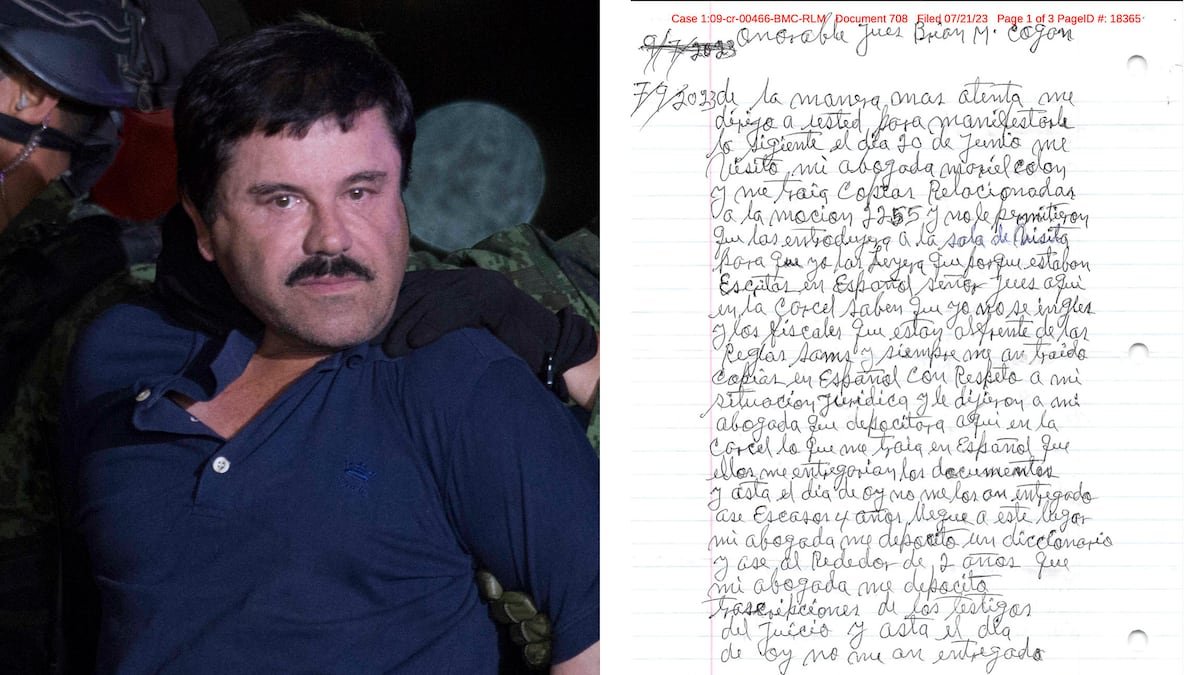 Case 1:09-cr-00466-BMC-RLM Document 708 Filed 07/21/23 Page 1 of 3 PageID #: 18365
9/7/2023 Onorable Jues Brian M. Cogan
7/9/2023 de la manera mas atenta me
dirijo a usted para manifestarle
lo sigiente el dia 20 de Junio me
visito mi abogada mariel colon
y me traia copias Relacionadas
a la mocion 2255 y no le permitieron
que las introdujera a la sala de visita
para que yo las leyera que porque estaban
Escritas en Español señor jues aqui
en la carcel saben que yo no se ingles
y los fiscales que estan al frente de las
Reglas sams y siempre me an traido
copias en Español con Respeto a mi
situacion juridica y le dijeron a mi
abogada que depocitara aqui en la
carcel lo que me traia en Español que
ellos me entregarian los documentos
y asta el dia de oy no me los an entregado
ase Escasos 4 años llegue a este lugar
mi abogada me depocito un diccionario
y ase al Rededor de 2 años que
mi abogada me depocito
trascripciones de los testigos
del Juicio y asta el dia
de oy no me an entregado